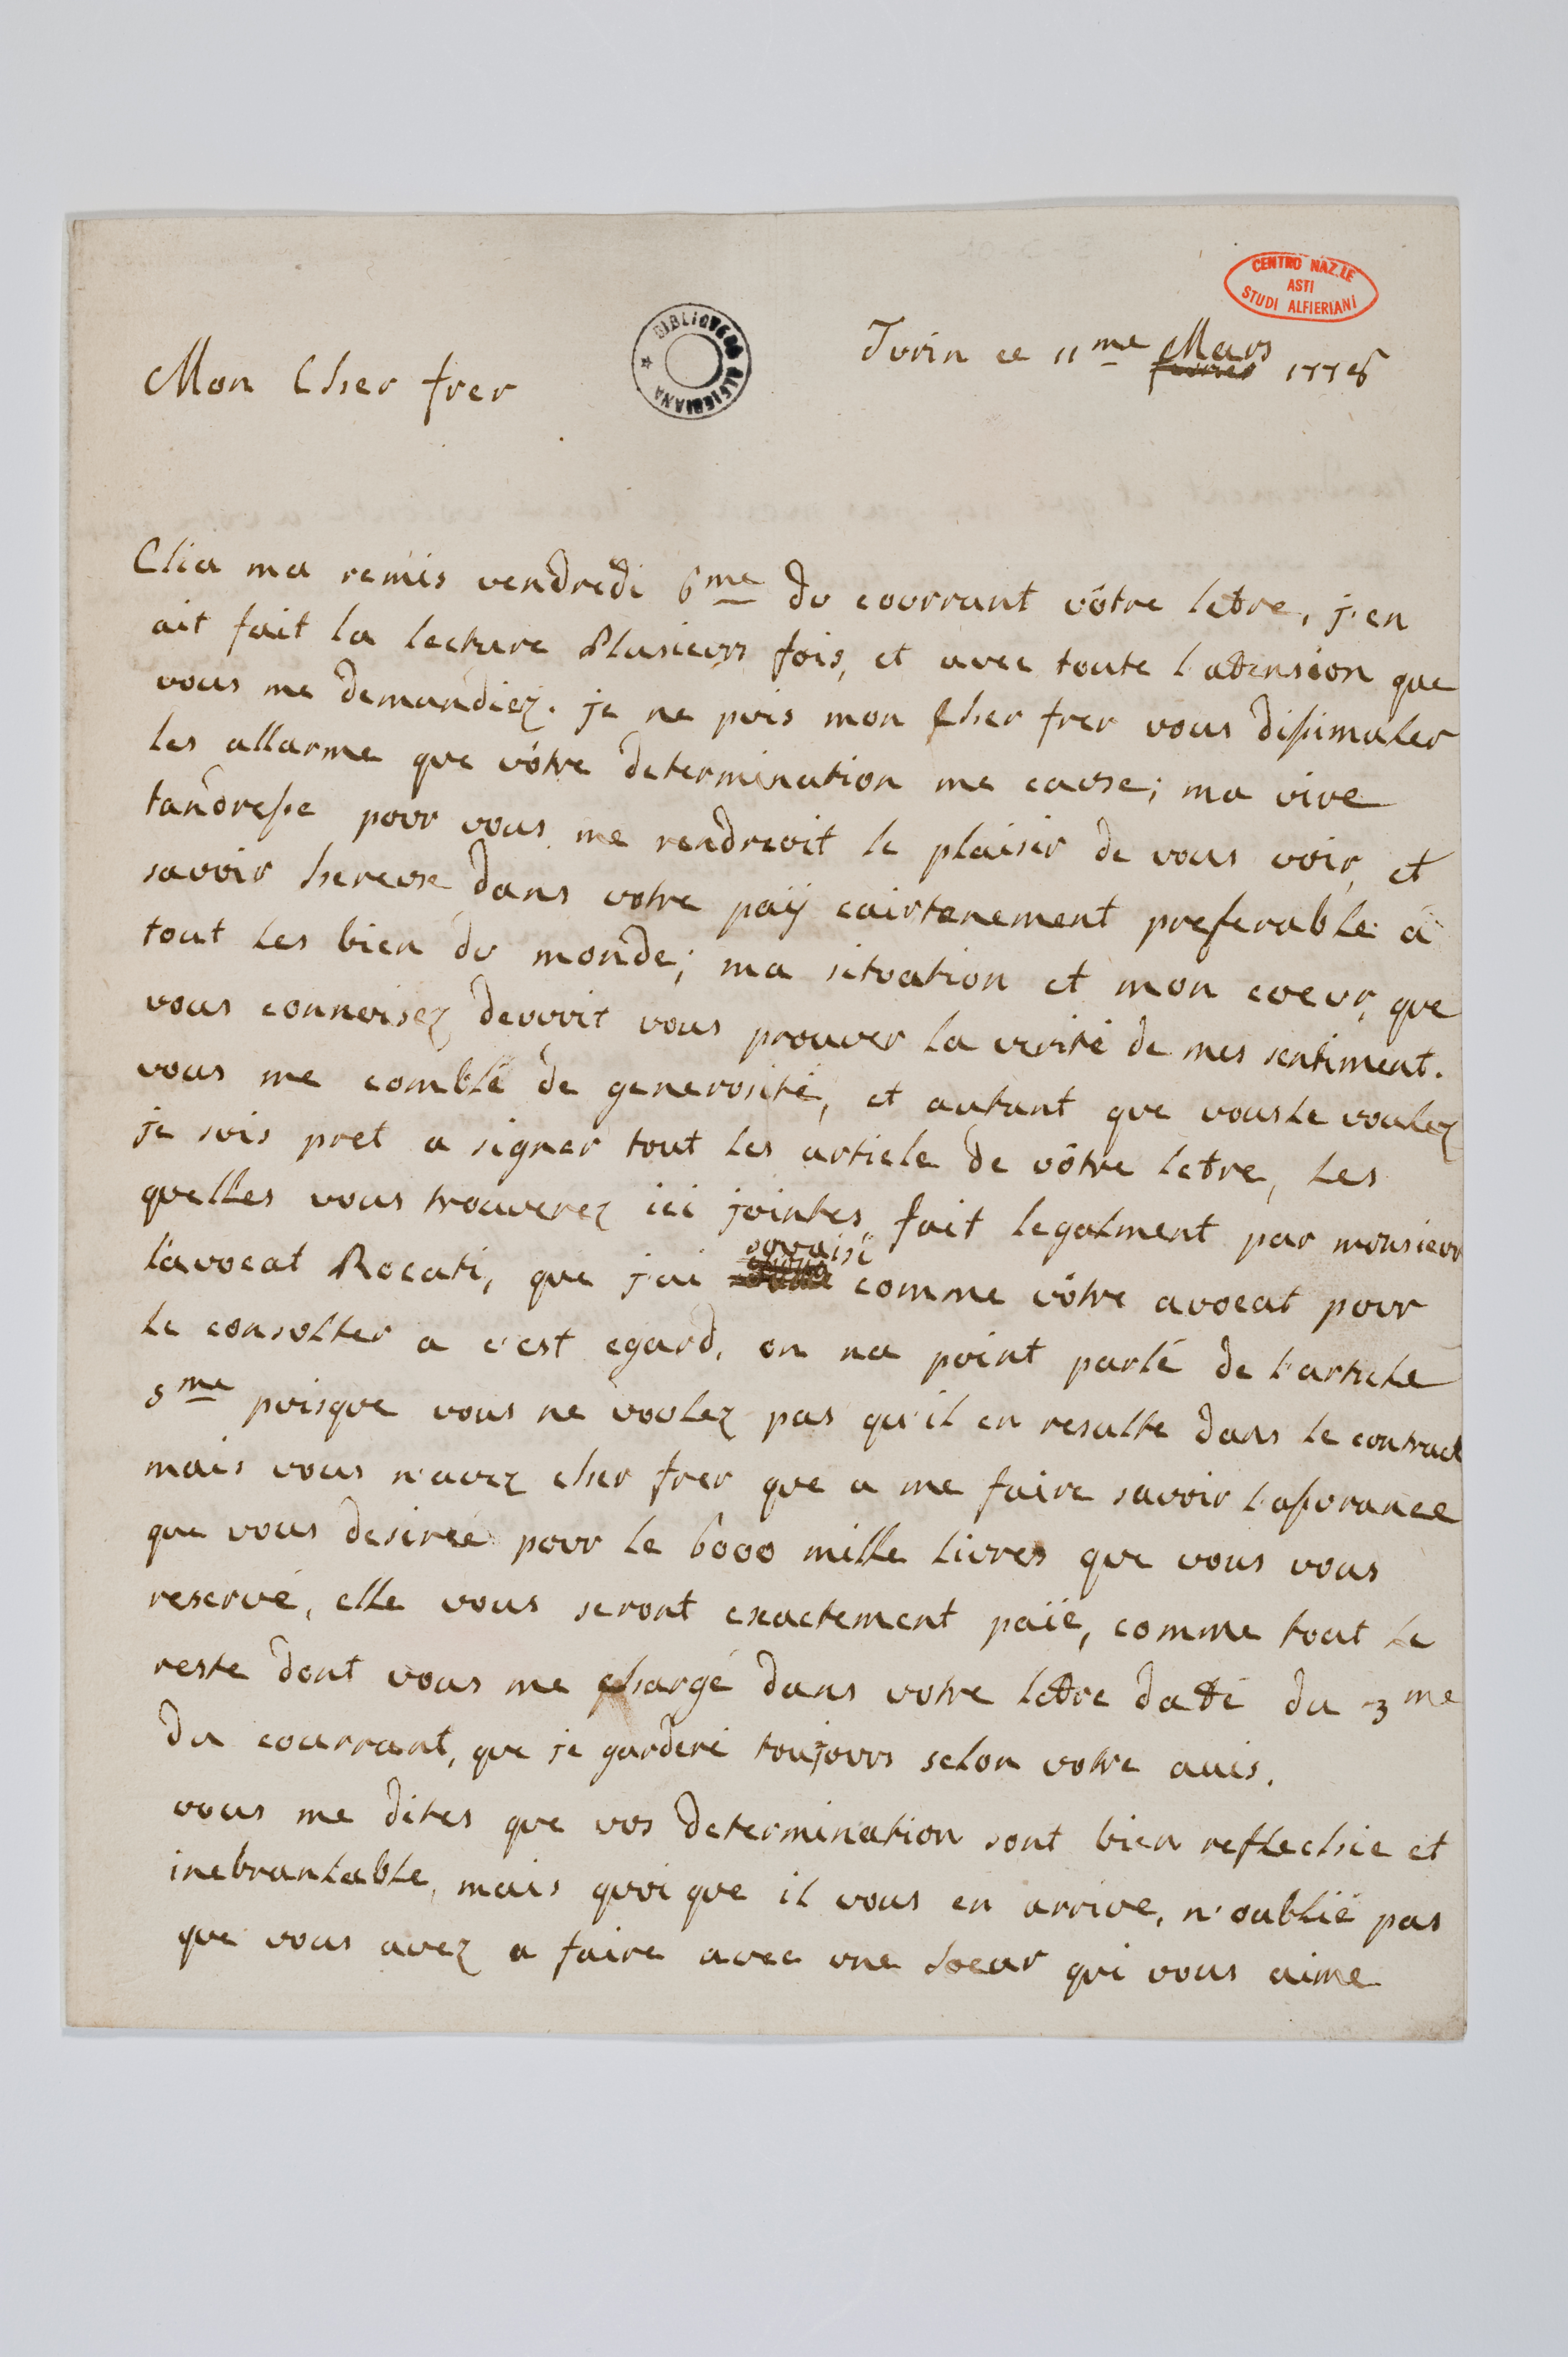 CENTRO NAZ.LE
ASTI
STUDI ALFIERIANI
BIBLIOTECA ALFIERIANA
Turin ce 11me Mars 1778
Mon Cher frer
Elia ma remis vendredi 6me du courrant vôtre letre, j'en
ait fait la lecture Plusieurs fois, et avec toute l'atension que
vous me demandiez. je ne puis mon Cher frer vous dissimuler
les allarme que vôtre determination me cause; ma vive
tandresse pour vous me rendreoit le plaisir de vous voir, et
savoir hereux dans votre païj cairtenement preferable à
tout les bien du monde; ma situation et mon coeur, que
vous connoisez devroit vous prouver la verité de mes sentiment.
vous me comblé de generosité, et autant que vous le voulez
je suis pret a signer tout les article de vôtre letre, les
quelles vous trouverez ici jointes, fait legalment par monsieur
l'avocat Rocati, que j'ai comme vôtre avocat pour
le consulter a c'est egard, on na point parlé de l'article
5me puisque vous ne voulez pas qu'il en resulte dans le contract
mais vous n'avez cher frer que a me faire savoir l'assurance
que vous desireé pour le 6000 mille livres que vous vous
reservé, elle vous seront exactement païé, comme tout le
reste dont vous me chargé dans votre letre daté du 3me
du courrant, que je garderé toujours selon votre avis.
vous me dites que vos determination sont bien reflechie et
inebranlable, mais quoi que il vous en arrive, n'oublié pas
que vous avez a faire avec une soeur qui vous aime